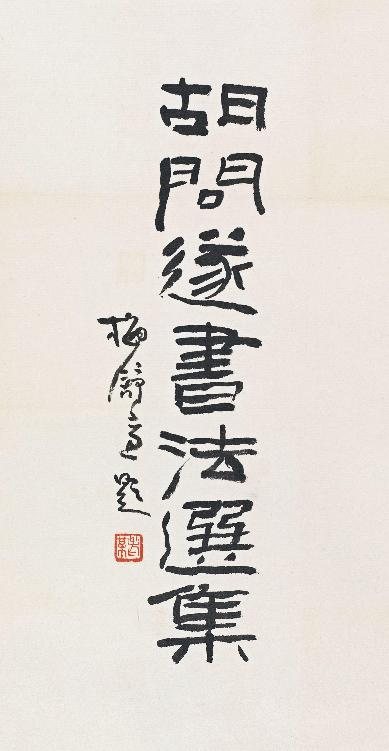 胡問遂書法選集
梅舒適題